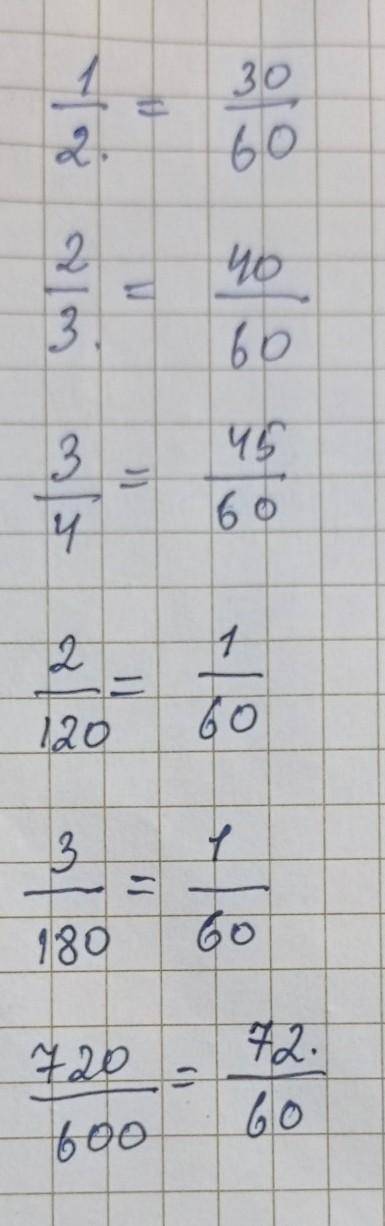 1/2. = 30/60
2/3. = 40/60
3/4 = 45/60
2/120 = 1/60
3/180 = 1/60
720/600 = 72./60